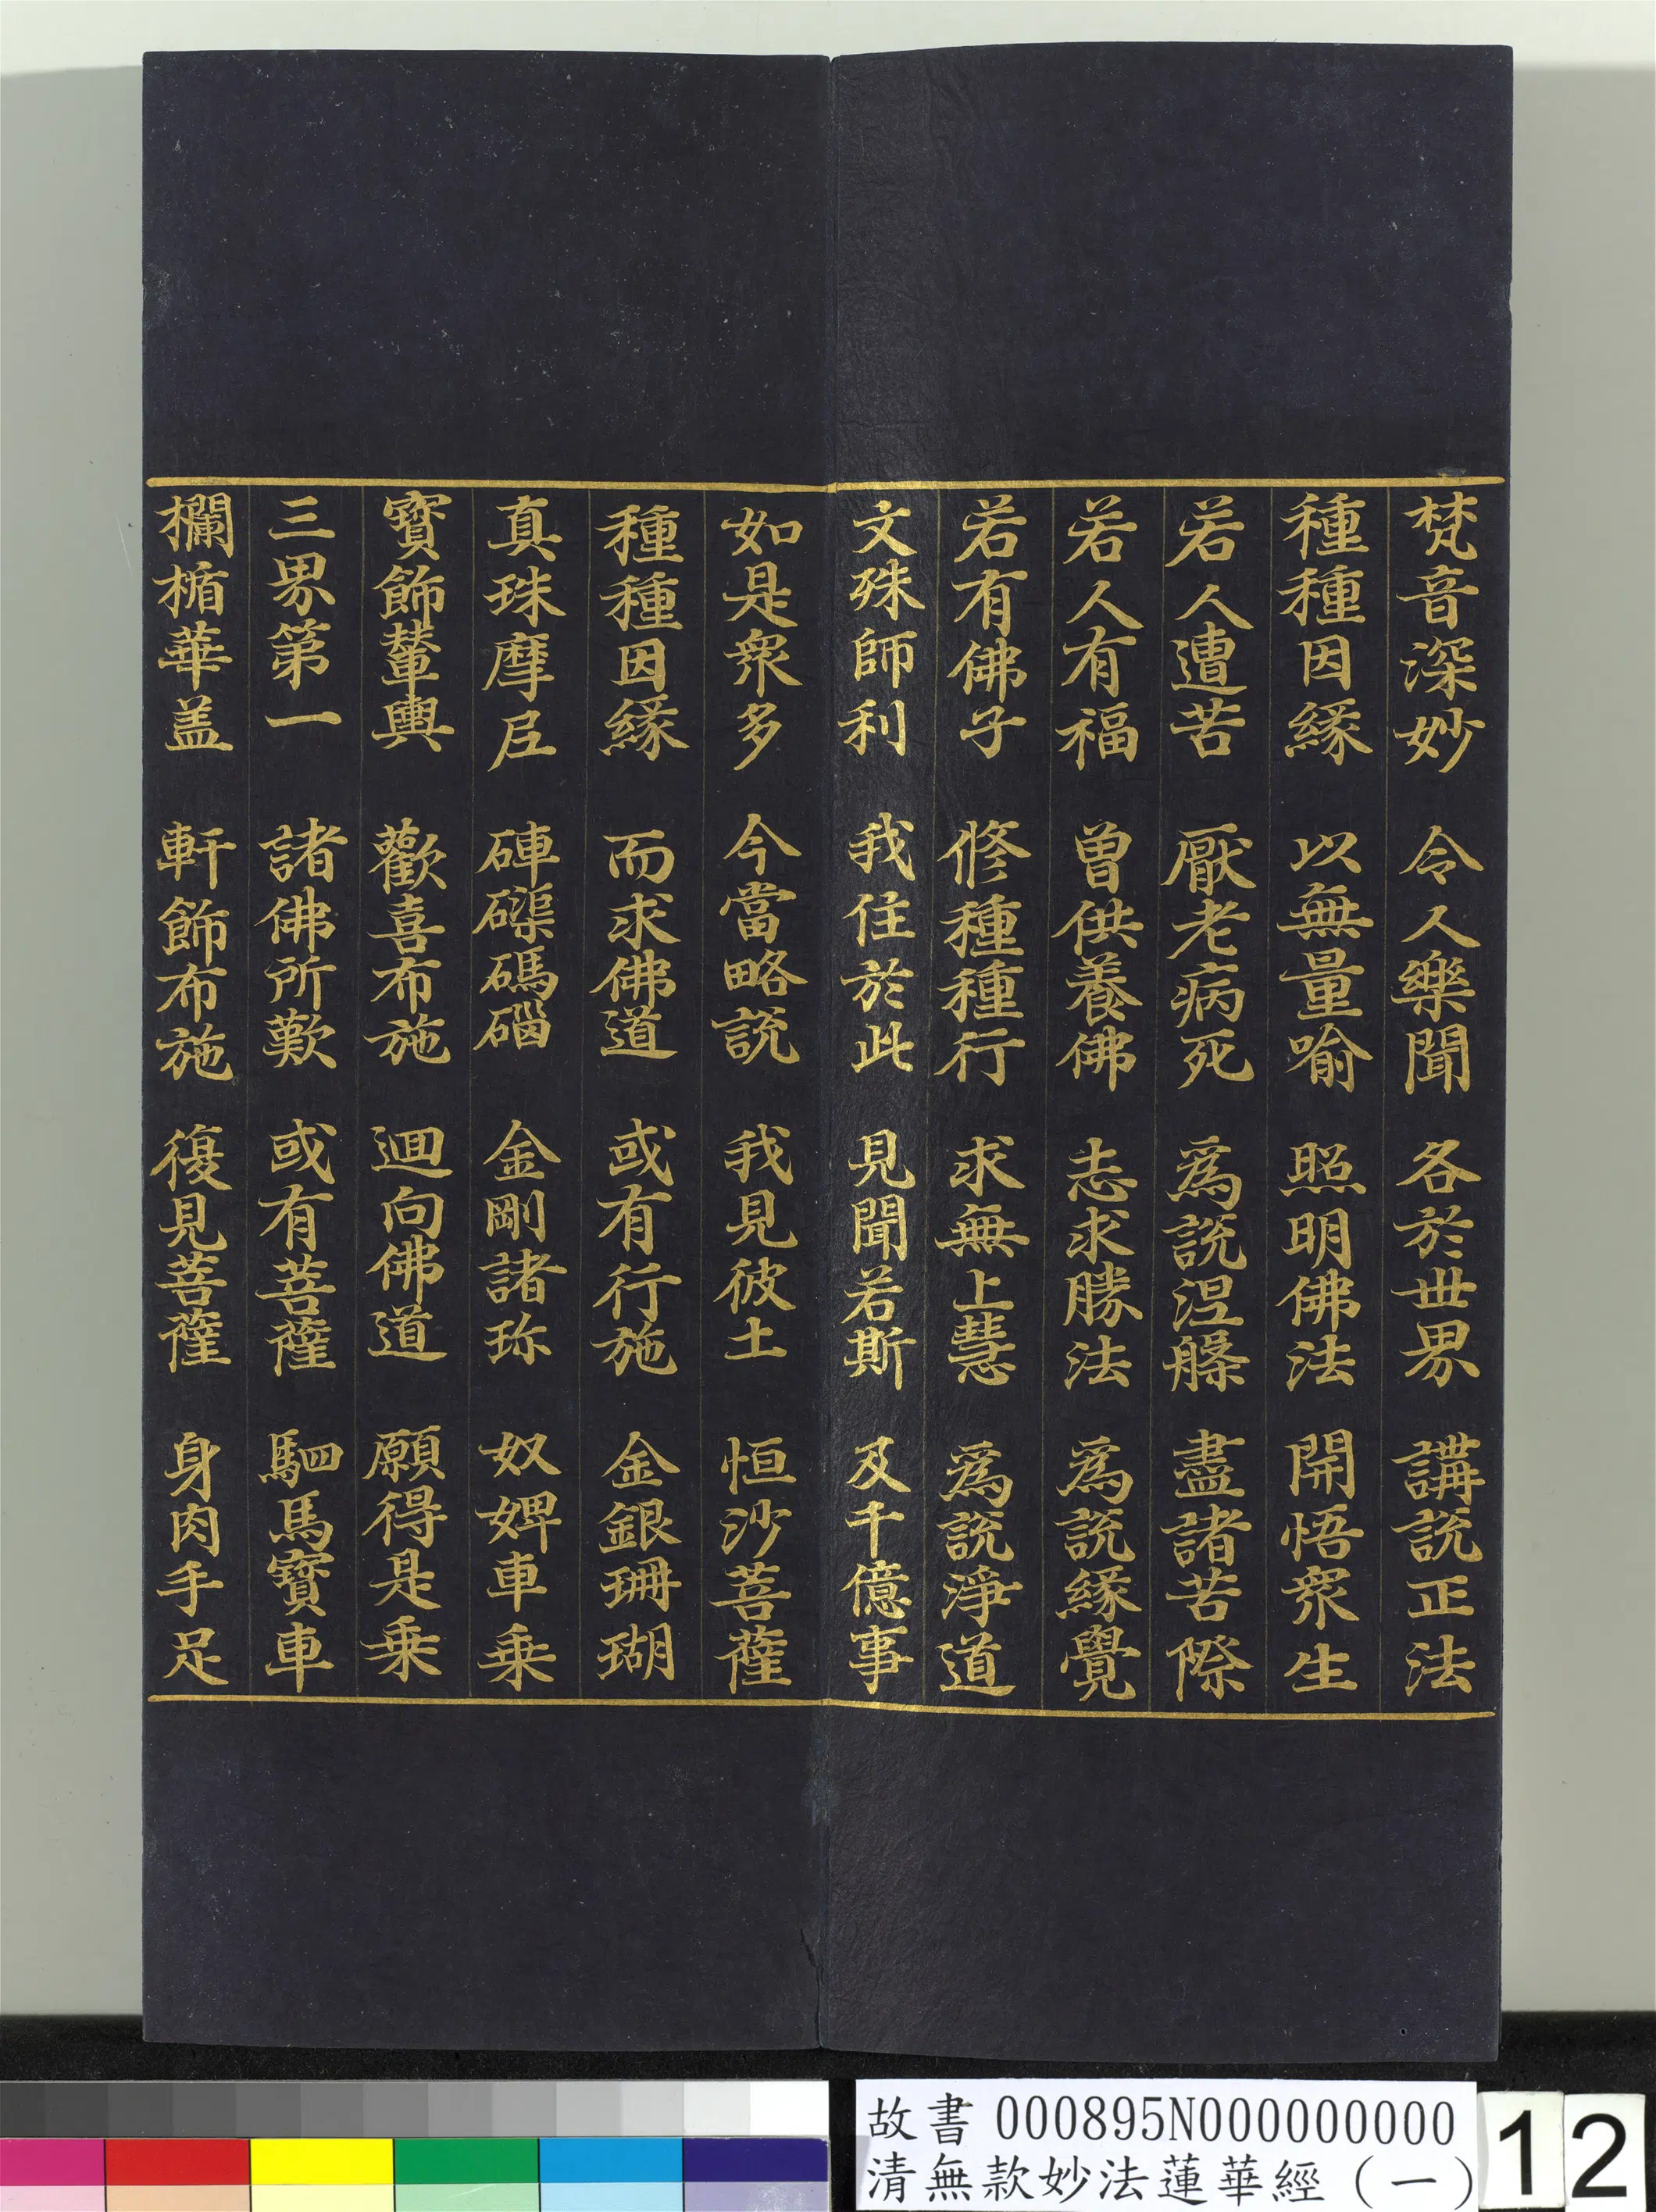 梵音深妙 令人樂聞 各於世界 講說正法
種種因緣 以無量喻 照明佛法 開悟眾生
若人遭苦 厭老病死 為說涅槃 盡諸苦際
若人有福 曾供養佛 志求勝法 為說緣覺
若有佛子 修種種行 求無上慧 為說淨道
文殊師利 我住於此 見聞若斯 及千億事
如是眾多 今當略說 我見彼土 恒沙菩薩
種種因緣 而求佛道 或有行施 金銀珊瑚
真珠摩尼 硨磲碼碯 金剛諸珍 奴婢車乘
寶飾輦輿 歡喜布施 迴向佛道 願得是乘
三界第一 諸佛所歎 或有菩薩 駟馬寶車
欄楯華盖 軒飾布施 復見菩薩 身肉手足
故書 000895N000000000
清無款妙法蓮華經（一）
12